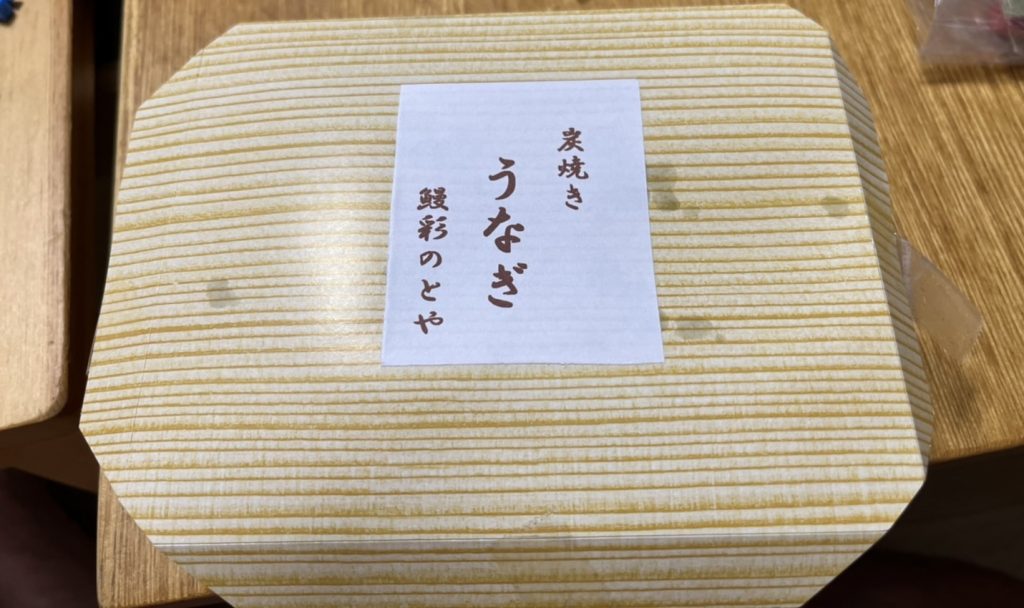 炭焼き
うなぎ
鰻彩のとや